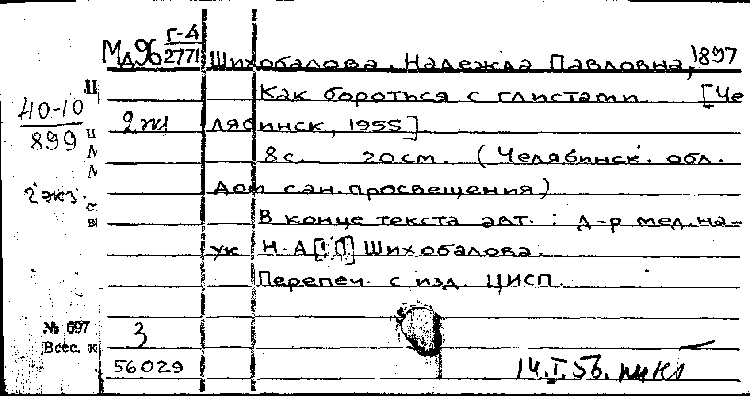 Мд96 Г-4/2771
Шихобалова, Надежда Павловна, 1897
Как бороться с глистами [Че
40-10/899
2жл
лябинск, 1955]
8 с. 20 см. (Челябинск. обл.
2 экз.
дом сан. просвещения)
В конце текста авт.: д-р мед. на-
ук Н.А[!] Шихобалова.
Перепеч. с изд. ЦИСП.
№ 697
3
Всес. к
56029
14.I.56.